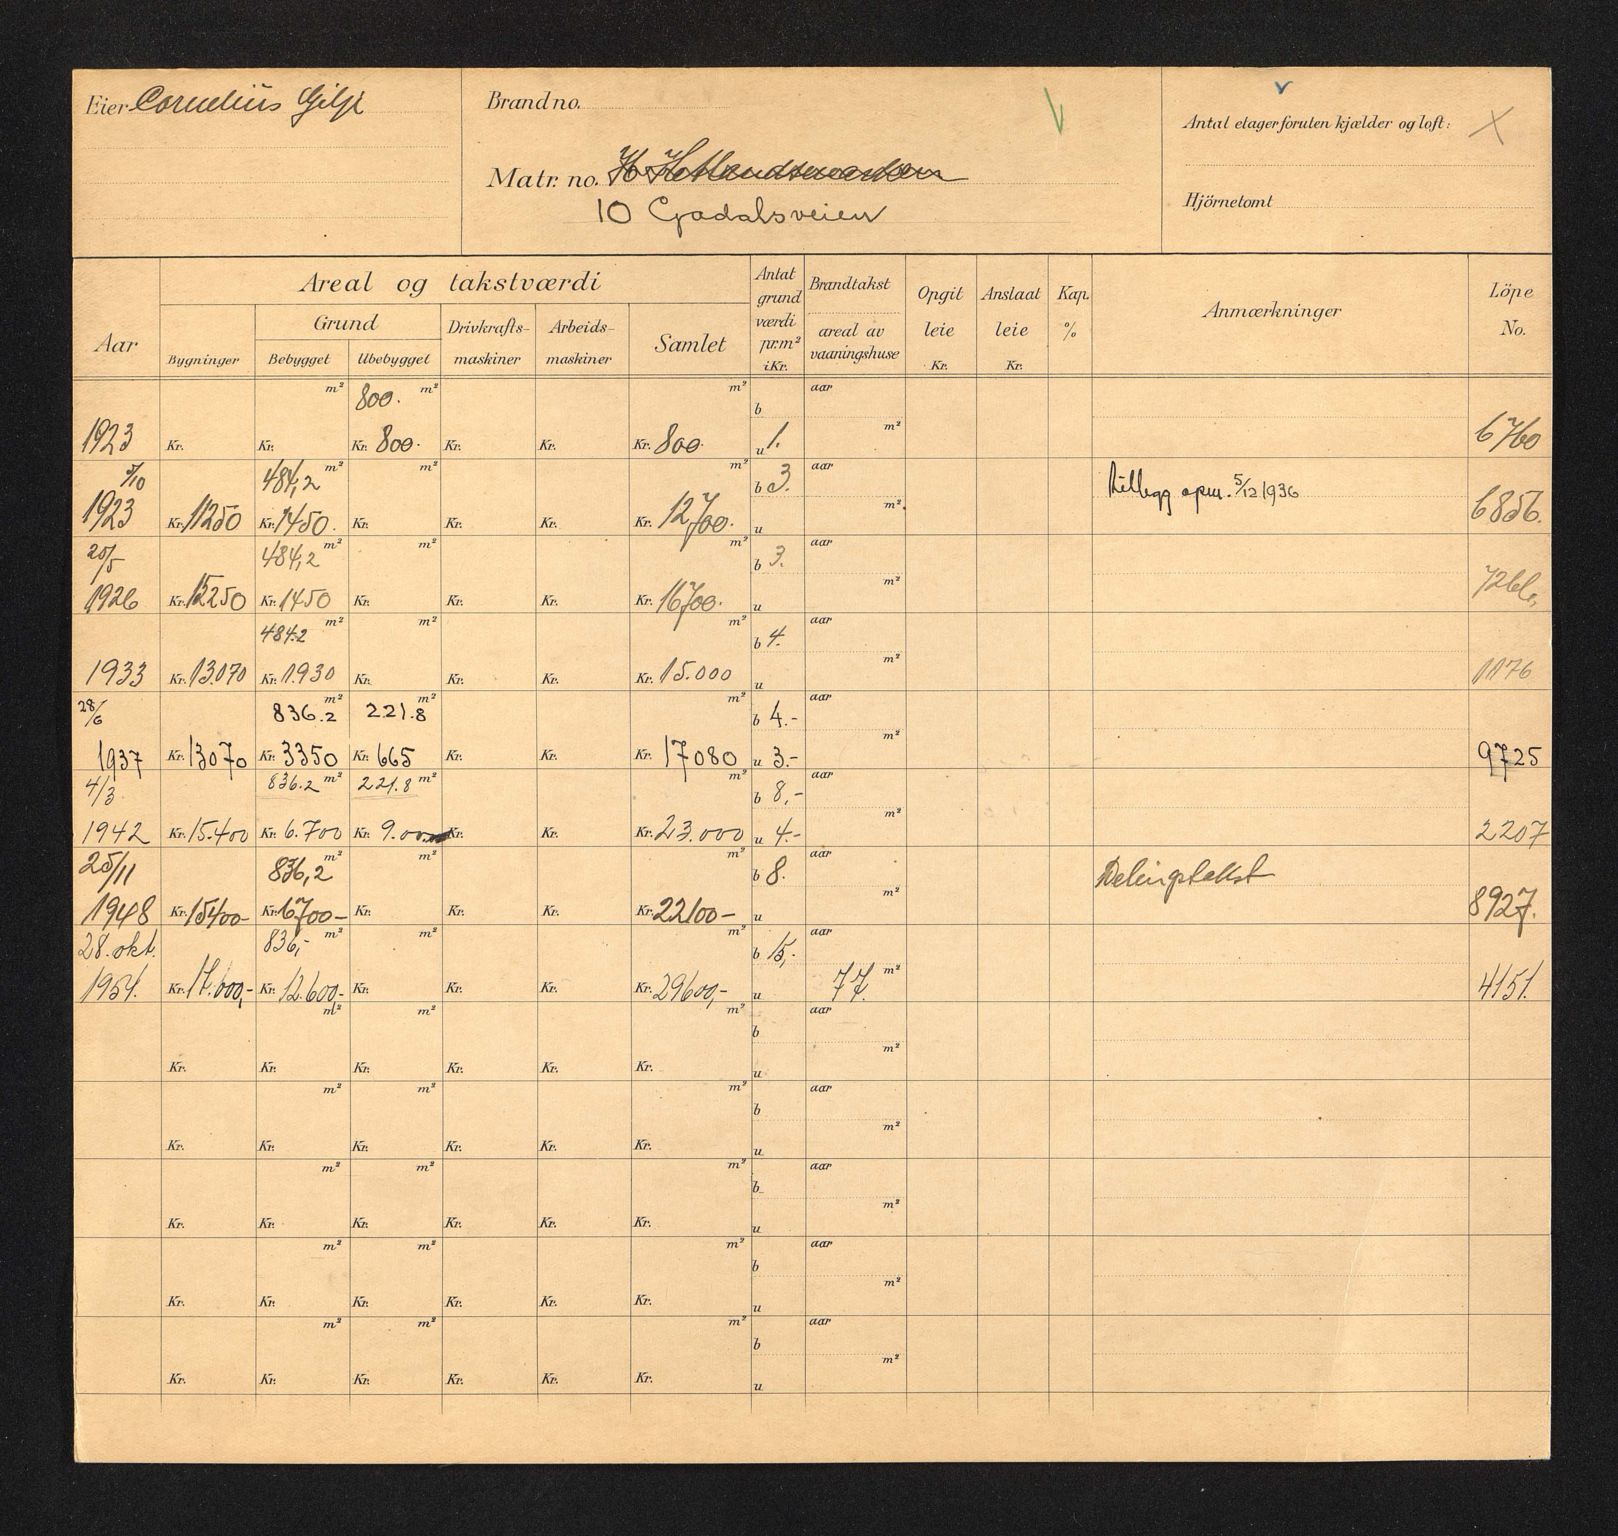 Eier Cornelius Gilje
Brand no.
Antal etager foruten kjælder og loft: X
Matr. no.
10 Gjadalsveien
Hjörnetomt
Areal og takstværdi
Aar Bygninger Grund Bebygget Ubebygget Drivkrafts-maskiner Arbeids-maskiner Samlet Antat grund værdi pr.m² i Kr. Brandtakst areal av vaaningshuse Opgit leie Kr. Anslaat leie Kr. Kap. % Anmærkninger Löpe No.
m² 800. m² m² b aar
1923 Kr. Kr. Kr. 800. Kr. Kr. Kr. 800. u 1. m² 6760
5/10 484,2 m² m² m² b 3. aar Tillegg opm. 5/12 1936
1923 Kr. 11250 Kr. 1450. Kr. Kr. Kr. Kr. 12700. u m² 6856.
20/5 484,2 m² m² m² b 3. aar
1926 Kr. 15250 Kr. 1450 Kr. Kr. Kr. Kr. 16700. u m²
484.2 m² m² m² b 4. aar
1933 Kr. 13.070 Kr. 1.930 Kr. Kr. Kr. Kr. 15.000 u m² 1176
28/6 836.2 m² 221.8 m² m² b 4.- aar
1937 Kr. 13070 Kr. 3350 Kr. 665 Kr. Kr. Kr. 17080 u 3.- m² 9725
4/3 836.2 m² 221.8 m² m² b 8,- aar
1942 Kr. 15.400 Kr. 6.700 Kr. 9.00 Kr. Kr. Kr. 23.000 u 4.- m² 2207
25/11 836,2 m² m² m² b 8. aar Delingstakst
1948 Kr. 15400- Kr. 6700- Kr. Kr. Kr. Kr. 22100- u m² 8927.
28. okt. 836,- m² m² m² b 15,- aar
1954. Kr. 17.000,- Kr. 12.600.- Kr. Kr. Kr. Kr. 29600,- u 77. m² 4151.
m² m² m² b aar
Kr. Kr. Kr. Kr. Kr. Kr. u m²
m² m² m² b aar
Kr. Kr. Kr. Kr. Kr. Kr. u m²
m² m² m² b aar
Kr. Kr. Kr. Kr. Kr. Kr. u m²
m² m² m² b aar
Kr. Kr. Kr. Kr. Kr. Kr. u m²
m² m² m² b aar
Kr. Kr. Kr. Kr. Kr. Kr. u m²